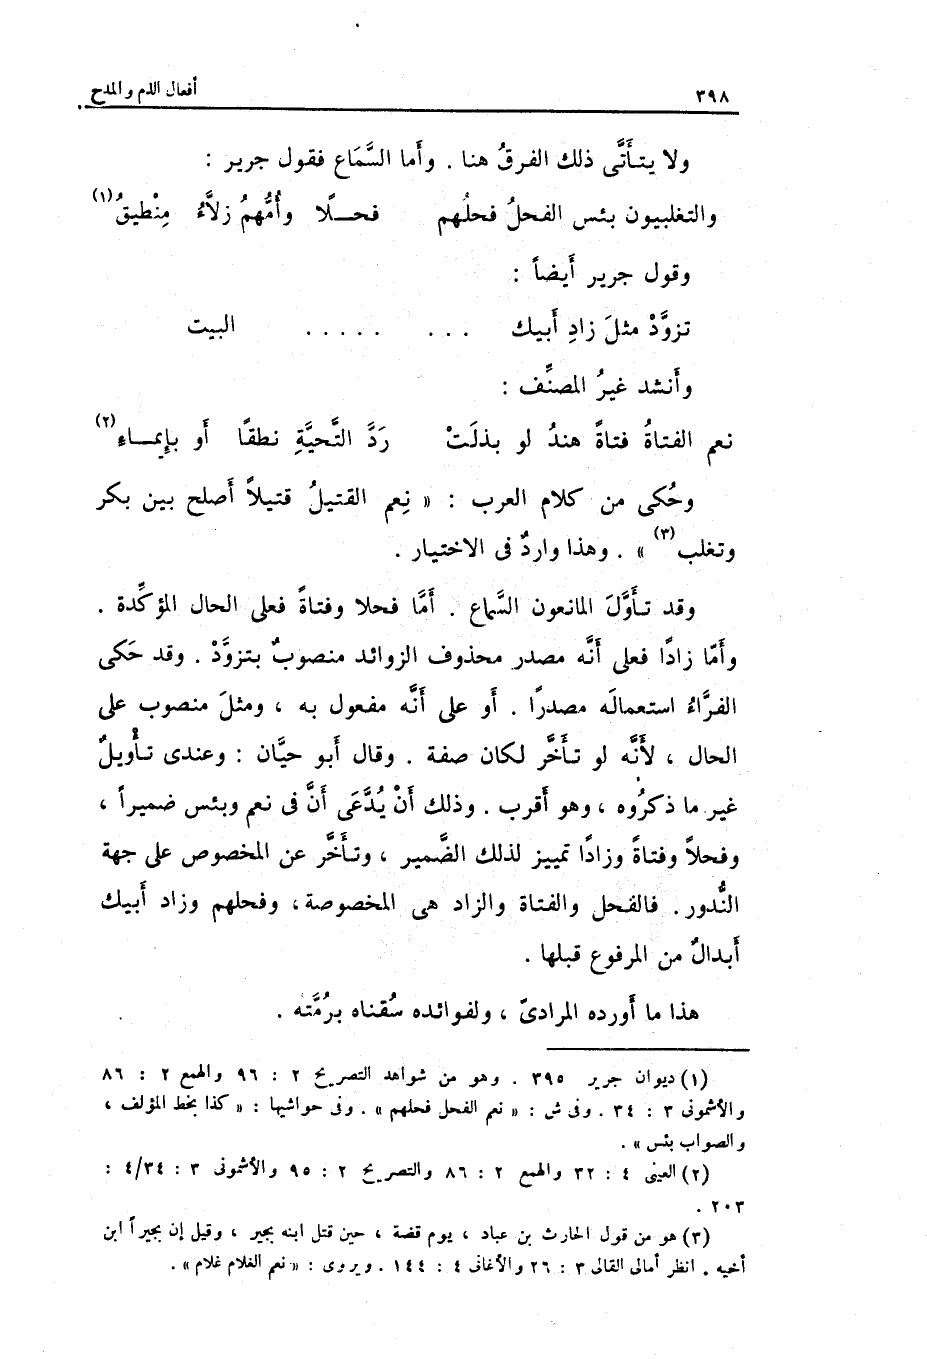 ٣٩٨ أفعال الذم والمدح
ولا يتأَتَّى ذلك الفرقُ هنا . وأَما السَّمَاع فقول جرير :
والتغلبيون بئس الفحلُ فحلُهم فحــلًا وأُمُّهمُ زلاَّءُ مِنْطيقُ(١)
وقول جرير أَيضاً :
تزوَّدْ مثلَ زادِ أَبيك . . . . . . . . البيت
وأَنشد غيرُ المصنِّف :
نعم الفتاةُ فتاةً هندُ لو بذلَتْ رَدَّ التَّحيَّةِ نطقًا أَو بإيمــاءِ(٢)
وحُكى من كلام العرب : « نِعم القتيلُ قتيلاً أَصلح بين بكر
وتغلب(٣) » . وهذا واردٌ فى الاختيار .
وقد تأَوَّلَ المانعون السَّماع . أَمَّا فحلا وفتاةً فعلى الحال المؤكِّدة .
وأَمّا زادًا فعلى أَنَّه مصدر محذوف الزوائد منصوبٌ بتزوَّدْ . وقد حَكى
الفرَّاءُ استعمالَه مصدرًا . أَو على أَنَّه مفعول به ، ومثلَ منصوب على
الحال ، لأَنَّه لو تأَخَّر لكان صفة . وقال أَبو حيَّان : وعندى تأْويلٌ
غير ما ذكرُوه ، وهو أَقرب . وذلك أَنْ يُدَّعَى أَنَّ فى نعم وبئس ضميراً ،
وفحلاً وفتاةً وزادًا تمييز لذلك الضَّمير ، وتأَخَّر عن المخصوص على جهة
النُّدور . فالفحل والفتاة والزاد هى المخصوصة ، وفحلهم وزاد أَبيك
أَبدالٌ من المرفوع قبلها .
هذا ما أَورده المرادىّ ، ولفوائده سُقناه برُمَّته .
(١) ديوان جرير ٣٩٥ . وهو من شواهد التصريح ٢ : ٩٦ والهمع ٢ : ٨٦
والأشمونى ٣ : ٣٤ . وفى ش : « نعم الفحل فحلهم » . وفى حواشيها : « كذا بخط المؤلف ،
والصواب بئس » .
(٢) العينى ٤ : ٣٢ والهمع ٢ : ٨٦ والتصريح ٢ : ٩٥ والأشمونى ٣ : ٤/٣٤ :
٢٠٣ .
(٣) هو من قول الحارث بن عباد ، يوم قضة ، حين قتل ابنه بجير ، وقيل إن بجيراً ابن
أخيه . انظر أمالى القالى ٣ : ٢٦ والأغانى ٤ : ١٤٤ . ويروى : « نعم الغلام غلام » .